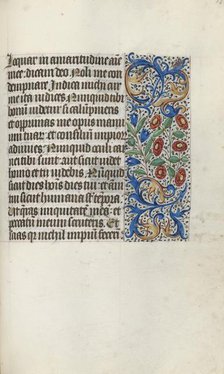 loquar in amaritudine aīe
mee: dicam deo. Noli me con
dempnare. Indica michi cur
me ita iudices Nunquid tibi
bonum videtur si calūpnieris
et opprimas me opus manu
um tuarum et consilium impior
adiuues. Nunquid oculi car
nei tibi sunt: aut sicut videt
homo et tu videbis. Nunquid
sicut dies hoīs dies tui: et anni
tui sicut humana st tēpora
Ut queras iniquitatē meā: et
peccatū meum scruteris. Et
scias quia nichil impiū fecerī